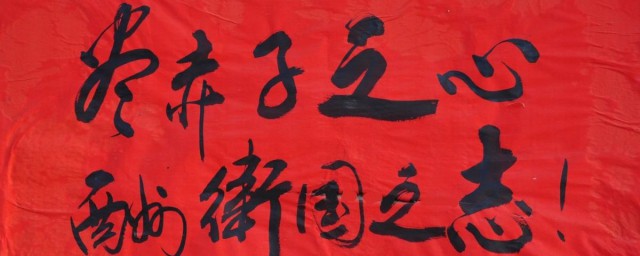 尽赤子之心
酬衛国之志！